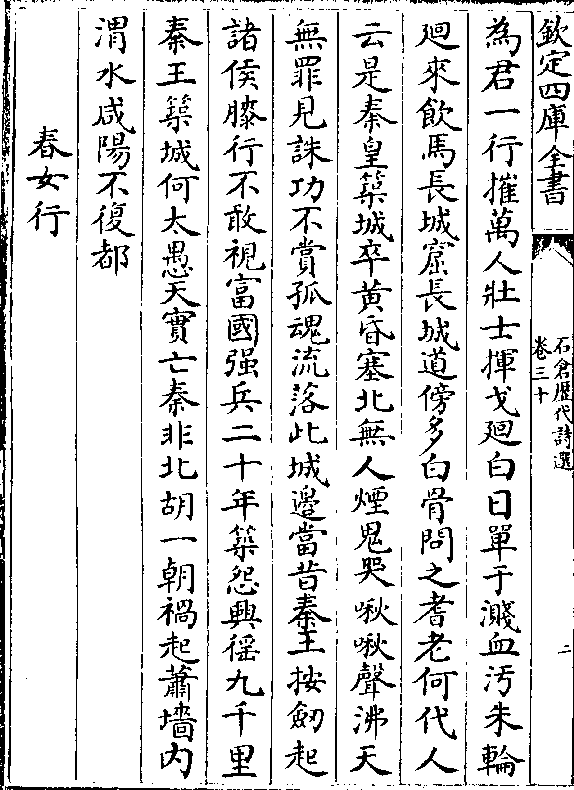 欽定四庫全書
石倉歴代詩選
卷三十
二
為君一行摧萬人壯士揮戈廻白日單于濺血汚朱輪
廻來飲馬長城窟長城道傍多白骨問之耆老何代人
云是秦皇築城卒黄昏塞北無人煙鬼哭啾啾聲沸天
無罪見誅功不賞孤魂流落此城邉當昔秦王按劒起
諸侯膝行不敢視富國强兵二十年築怨興徭九千里
秦王築城何太愚天實亡秦非北胡一朝禍起蕭墻内
渭水咸陽不復都
春女行